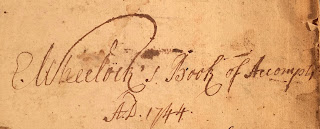 E Wheelock's Book of Accompts
A.D. 1744.